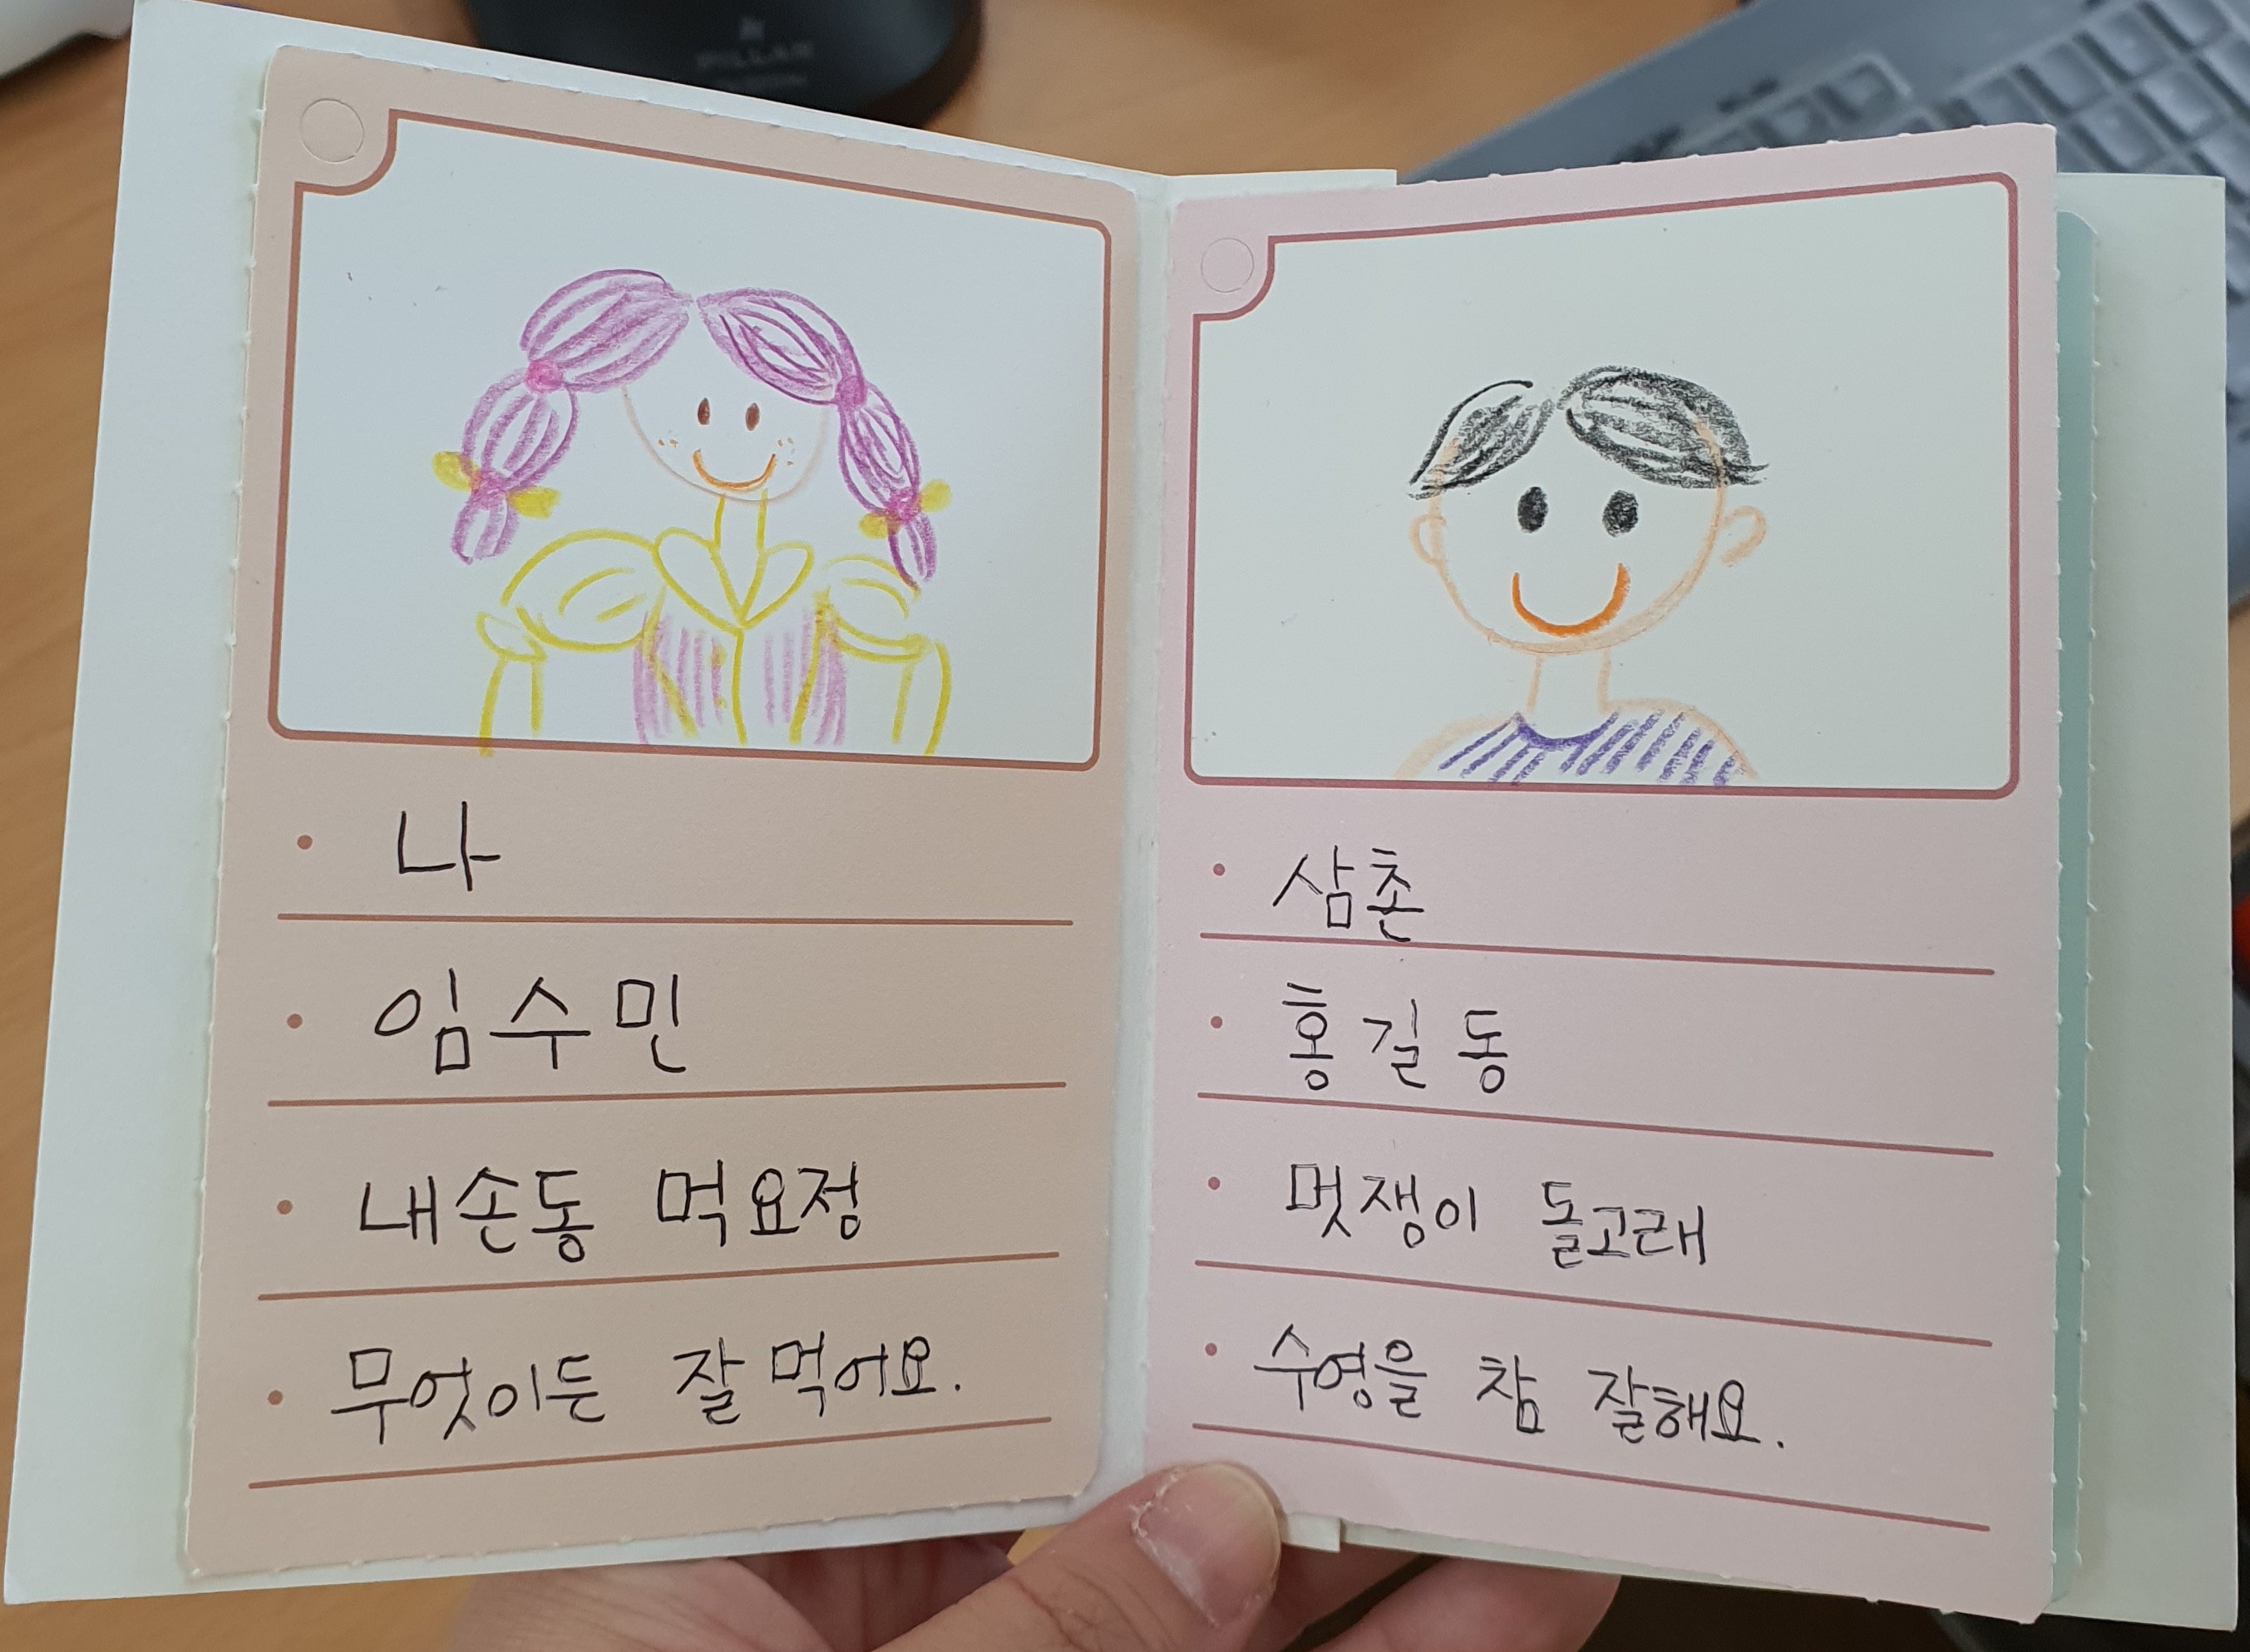 PILLAR
나
임수민
내손동 먹요정
무엇이든 잘먹어요.
삼촌
홍길동
멋쟁이 돌고래
수영을 참 잘해요.